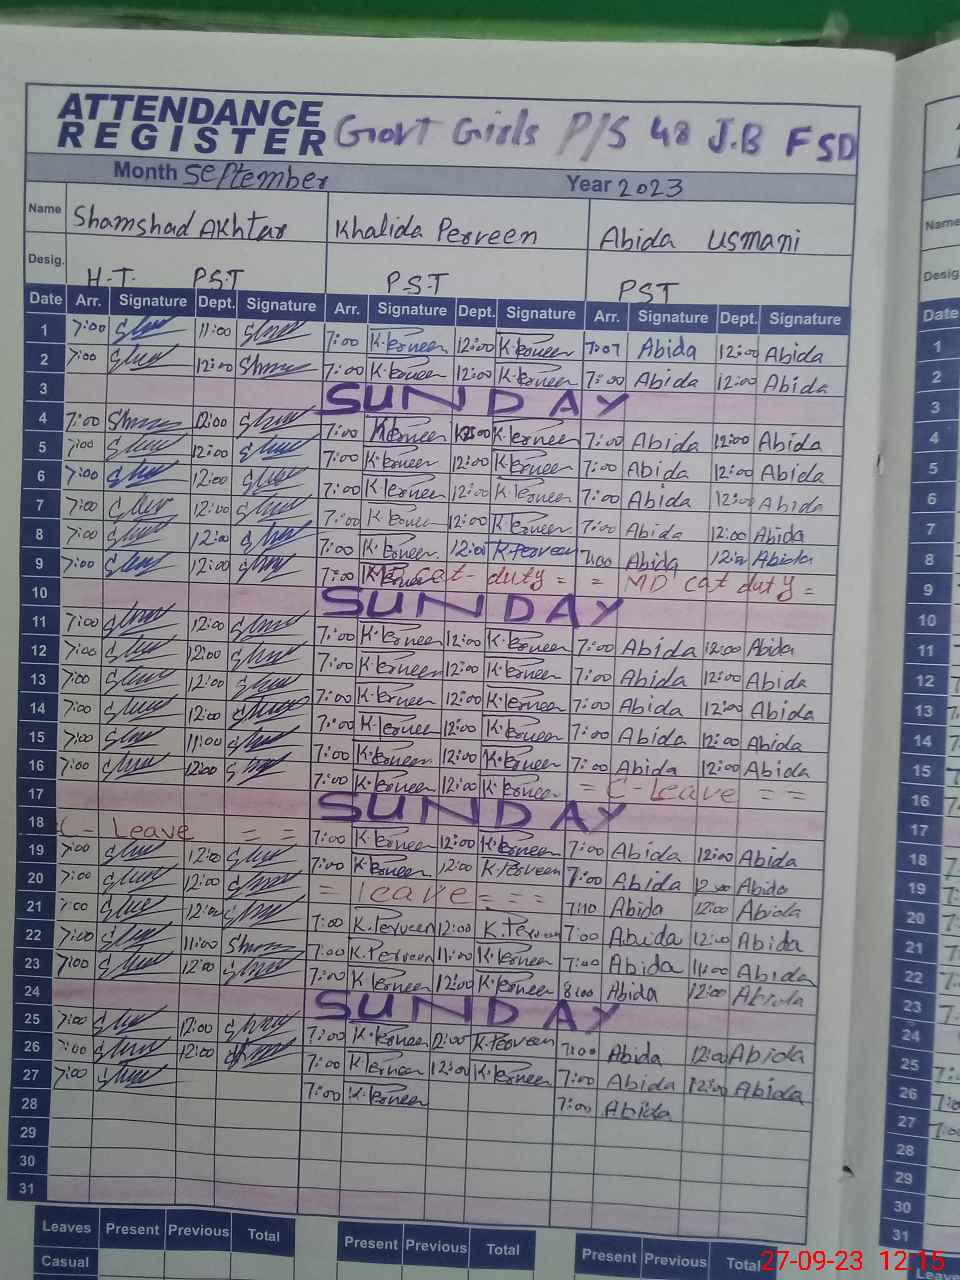 ATTENDANCE
REGISTER Govt Girls P/S 48 J.B FSD
Month September Year 2023
Name Shamshad Akhtar Khalida Perveen Abida Usmani
Desig. H.T. P.S.T P.S.T PST
Date Arr. Signature Dept. Signature Arr. Signature Dept. Signature Arr. Signature Dept. Signature
1 7:00 11:00 7:00 K.Perveen 12:00 K.Perveen 7:07 Abida 12:00 Abida
2 7:00 12:00 7:00 K.Perveen 12:00 K.Perveen 7:00 Abida 12:00 Abida
3 SUNDAY
4 7:00 12:00 7:00 K.Perveen K.Perveen 7:00 Abida 12:00 Abida
5 7:00 12:00 7:00 K.Perveen 12:00 K.Perveen 7:00 Abida 12:00 Abida
6 7:00 12:00 7:00 K.Perveen 12:00 K.Perveen 7:00 Abida 12:00 Abida
7 7:00 12:00 7:00 K.Perveen 12:00 K.Perveen 7:00 Abida 12:00 Abida
8 7:00 12:00 7:00 K.Perveen 12:00 K.Perveen 7:00 Abida 12:00 Abida
9 7:00 12:00 7:00 MD cat-duty = = MD cat duty =
10 SUNDAY
11 7:00 12:00 7:00 K.Perveen 12:00 K.Perveen 7:00 Abida 12:00 Abida
12 7:00 12:00 7:00 K.Perveen 12:00 K.Perveen 7:00 Abida 12:00 Abida
13 7:00 12:00 7:00 K.Perveen 12:00 K.Perveen 7:00 Abida 12:00 Abida
14 7:00 12:00 7:00 K.Perveen 12:00 K.Perveen 7:00 Abida 12:00 Abida
15 7:00 11:00 7:00 K.Perveen 12:00 K.Perveen 7:00 Abida 12:00 Abida
16 7:00 12:00 7:00 K.Perveen 12:00 K.Perveen = C-Leave = =
17 SUNDAY
18 C- Leave = = 7:00 K.Perveen 12:00 K.Perveen 7:00 Abida 12:00 Abida
19 7:00 12:00 7:00 K.Perveen 12:00 K.Perveen 7:00 Abida 12:00 Abida
20 7:00 12:00 = leave = = = 7:10 Abida 12:00 Abida
21 7:00 12:00 7:00 K.Perveen 12:00 K.Perveen 7:00 Abida 12:00 Abida
22 7:00 11:00 7:00 K.Perveen 11:00 K.Perveen 7:00 Abida 11:00 Abida
23 7:00 12:00 7:00 K.Perveen 12:00 K.Perveen 8:00 Abida 12:00 Abida
24 SUNDAY
25 7:00 12:00 7:00 K.Perveen 12:00 K.Perveen 7:00 Abida 12:00 Abida
26 7:00 12:00 7:00 K.Perveen 12:00 K.Perveen 7:00 Abida 12:00 Abida
27 7:00 7:00 K.Perveen 7:00 Abida
28
29
30
31
Leaves Present Previous Total Present Previous Total Present Previous Total
Casual
27-09-23 12:15
Name
Desig
Date
1
2
3
4
5
6
7
8
9
10
11
12
13
14
15
16
17
18
19
20
21
22
23
24
25
26
27
28
29
30
31